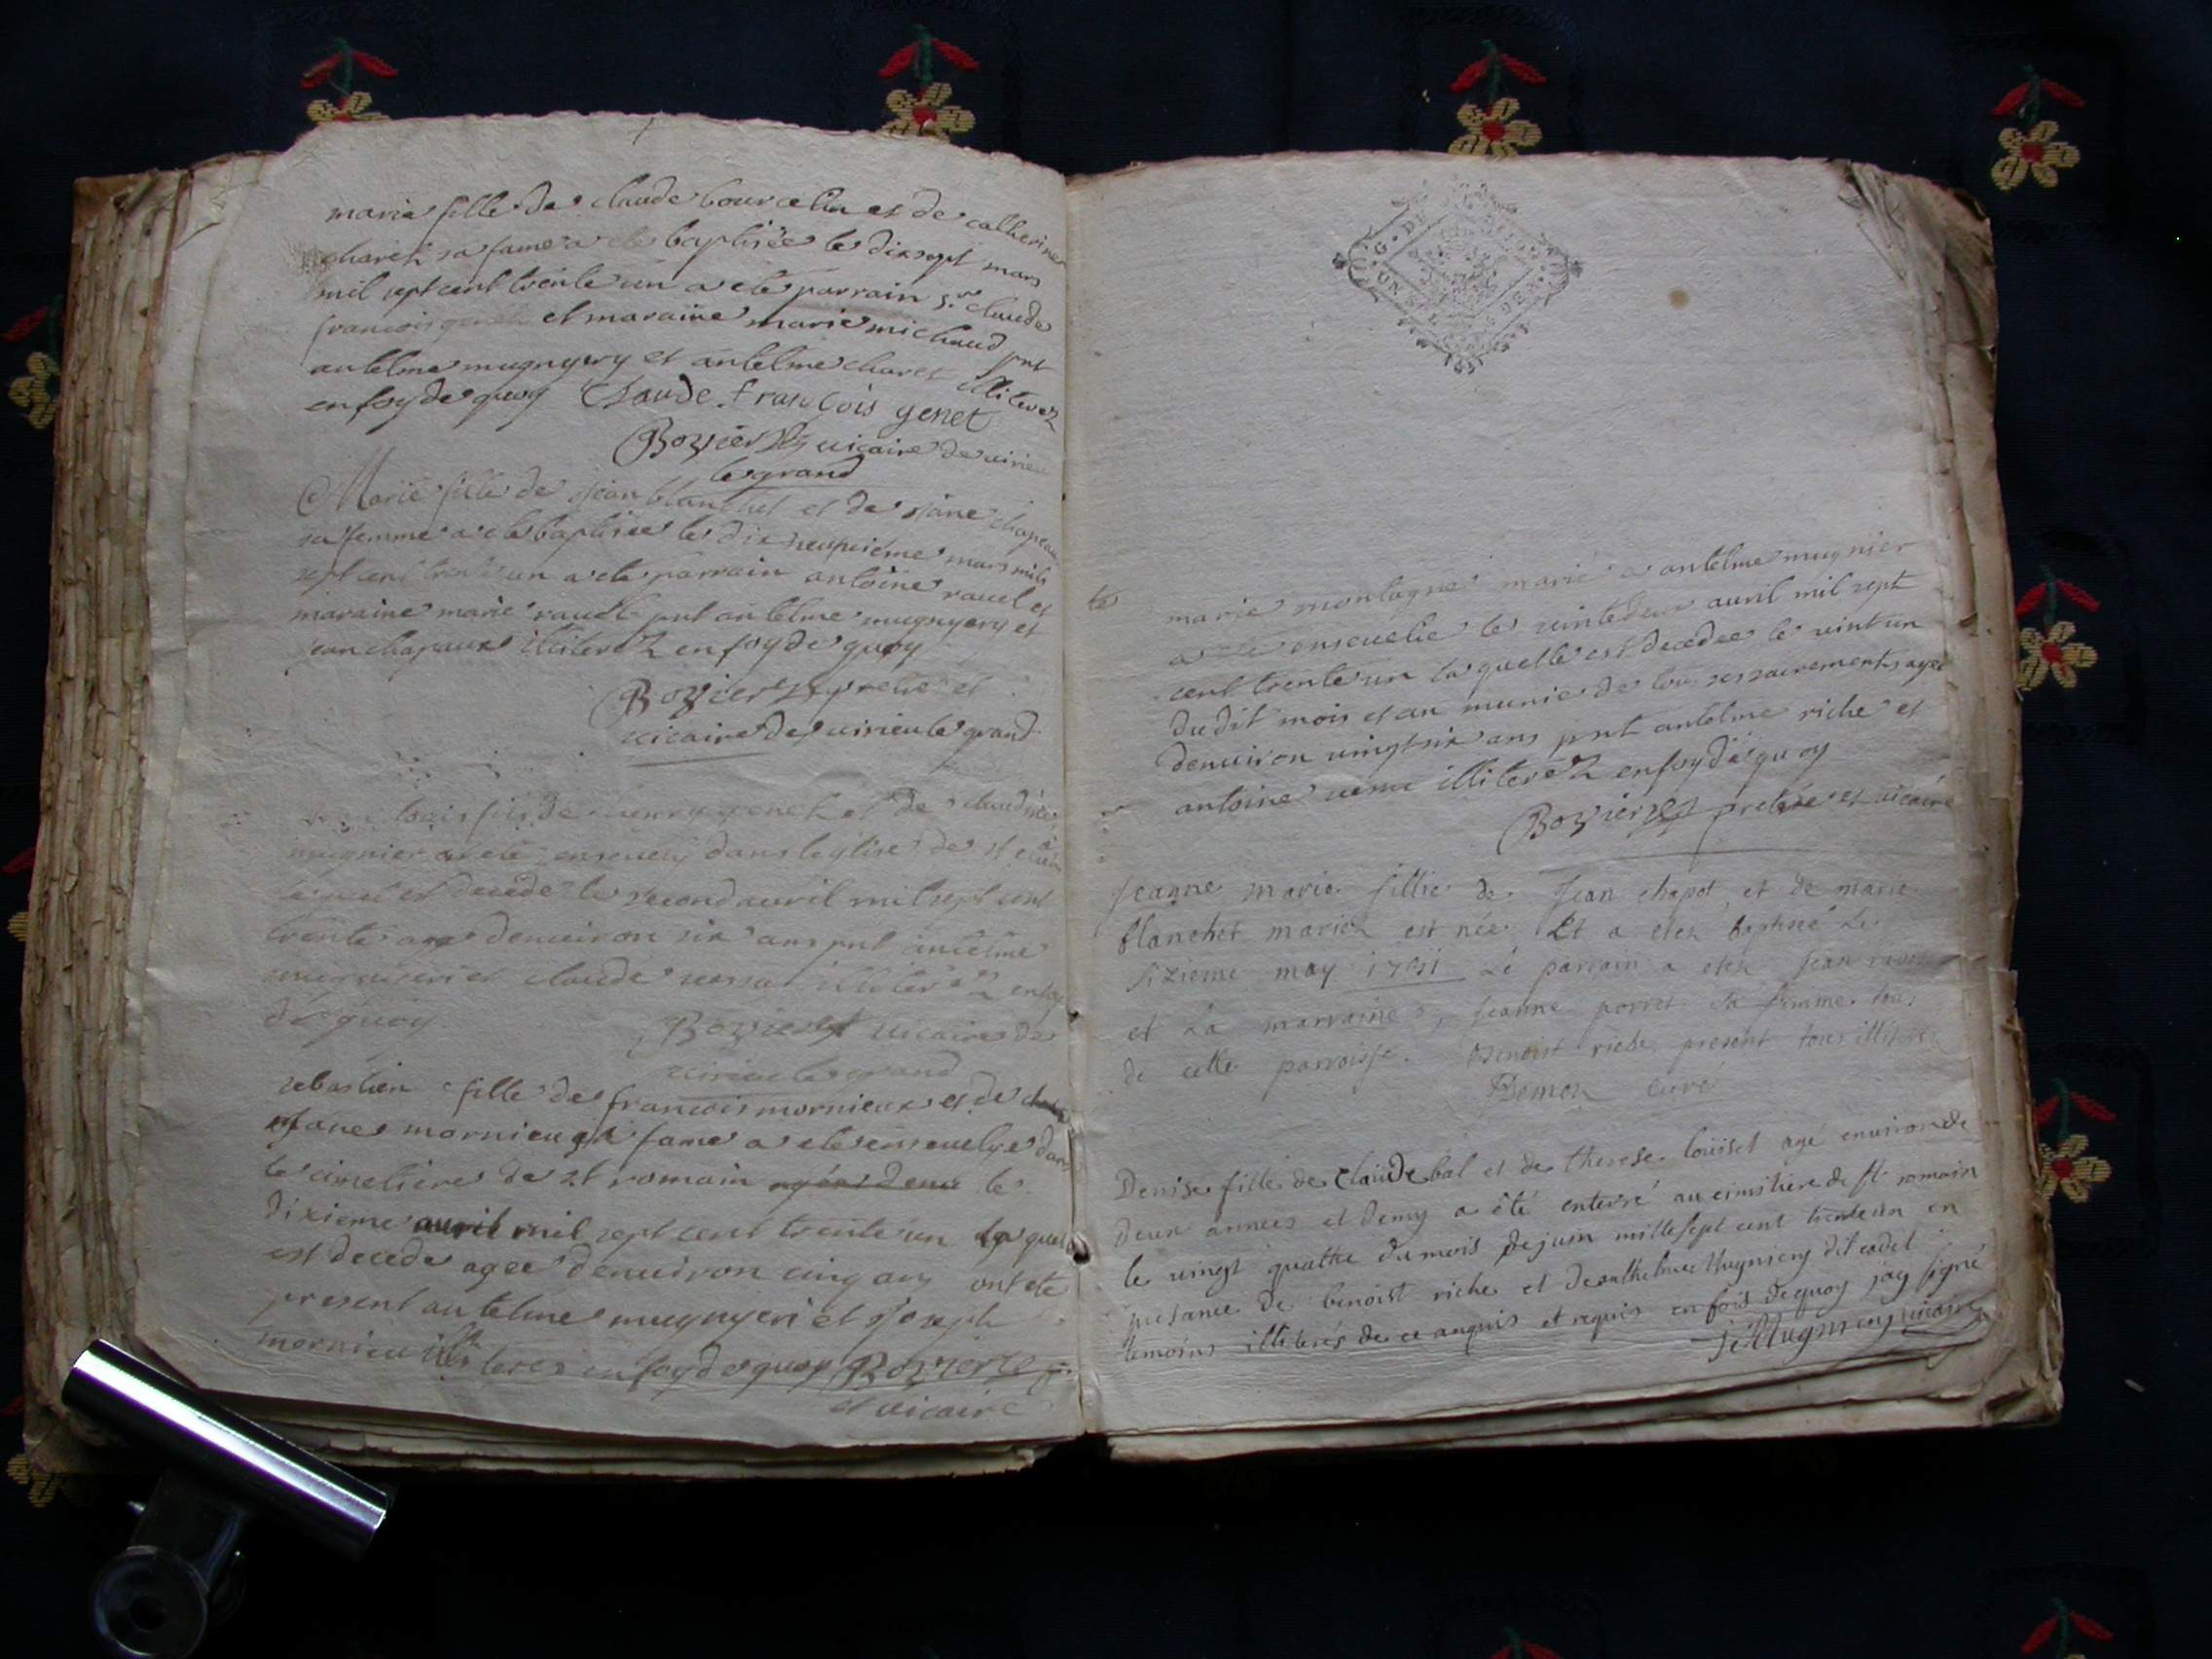 marie fille de claude bourcelin et de catherine
charet sa fame a ete baptisée le dixsept mars
mil sept cent trente un a ete parrain s.r claude
francois genet et maraine marie michaud pnt
antelme mugnyery et antelme charet illiterez
en foy de quoy Claude françois genet
Bozier vicaire de virieu
le grand
Marie fille de jean blanchet et de jane chapeau
sa femme a ete baptisée le dix neufvieme mars mil
sept cent trente un a ete parrain antoine ravel et
maraine marie ravel pnt antelme mugnyery et
jean chapaux illiterez en foy de quoy
Bozier pretre et
vicaire de virieu le grand
louis fils de genet et de claudine
mugnier a ete ensevely dans leglise de st
lequel est decede le second avril mil sept cent
trente age denviron six ans pnt antelme
mugnieri et claude illiterez en foy
de quoy
Bozier vicaire de
virieu le grand
sebastien fille de francois mornieux et de
mornieux sa fame a ete ensevelye dans
le cimetiere de st romain le
dixieme avril mil sept cent trente un la quelle
est decede agee denviron cinq ans ont ete
present antelme mugnyeri et joseph
mornieu illiteres en foy de quoy Bozier
et vicaire
marie montagne marie a antelme mugnier
a ete ensevelie le vintedeux avril mil sept
cent trente un la quelle est decedee le vint un
dudit mois et an munie de tous ses sairements agee
denviron vingt six ans pnt antelme riche et
antoine illiterez en foy de quoy
Bozier pretre et vicaire
Jeanne marie fillie de Jean chapot et de marie
blanchet mariez est née Et a etez baptisée Le
sizieme may 1731 Le parrain a etez Jean ravel
et La marraine, Jeanne porret sa femme tous
de cette parroisse. Benoist riche present tous illiterez
Demon curé
Denise fille de Claüde bal et de therese loüiset agé environ de
deux années et demy a été enterré au cimitiere de st romain
le vingt quattre du mois de juin mille sept cent trente un en
presance de benoist riche et de anthelme Mugniery dit cadet
temoins illiterés de ce anquis et requis en fois de quoy jay signé
Mugniery vicaire